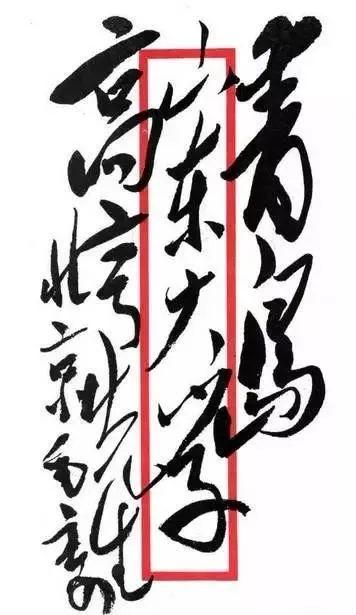 青岛
山东大学
高亨先生
北京毛寄